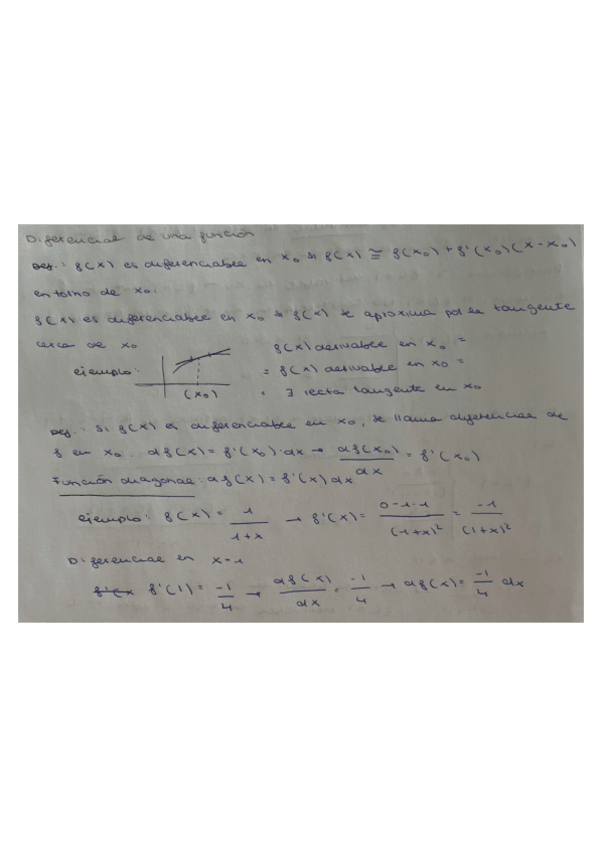 Diferencial de una función
Def.: f(x) es diferenciable en x₀ si f(x) ≅ f(x₀) + f'(x₀)(x-x₀)
entorno de x₀.
f(x) es diferenciable en x₀ si f(x) se aproxima por la tangente
cerca de x₀
ejemplo:
(x₀)
f(x) derivable en x₀ =
= f(x) derivable en x₀ =
= ∃ recta tangente en x₀
Def.: Si f(x) es diferenciable en x₀, se llama diferencial de
f en x₀. df(x) = f'(x₀)·dx → df(x₀)/dx = f'(x₀)
Función diagonal: df(x) = f'(x)dx
ejemplo: f(x) = 1/(1+x) → f'(x) = (0-1·1)/(1+x)² = -1/(1+x)²
Diferencial en x=1
f'(1) = -1/4 → df(x)/dx = -1/4 → df(x) = -1/4 dx